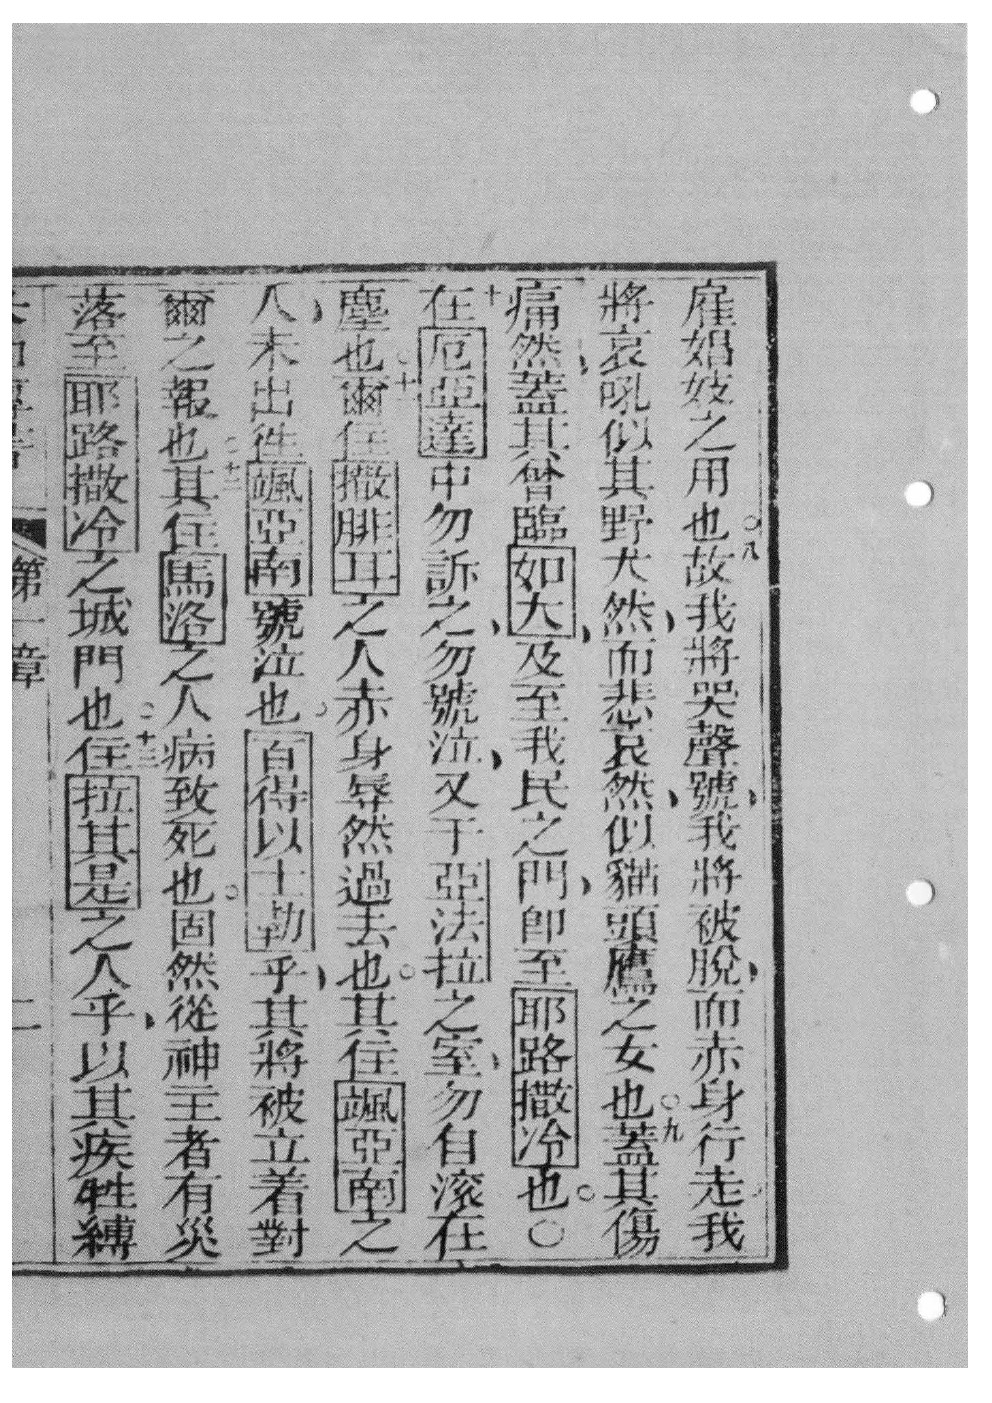 雇娼妓之用也○八故我將哭聲號我將被脫而赤身行走我
將哀吼似其野犬然而悲哀然似貓頭鷹之女也○九蓋其傷
痛然蓋其曾臨如大及至我民之門即至耶路撒冷也○
十在厄亞達中勿訴之勿號泣又于亞法拉之室勿自滾在
塵也○十一爾住撒腓耳之人赤身辱然過去也其住颯亞南之
人未出徃颯亞南號泣也百得以士勒乎其將被立着對
爾之報也○十二其住馬洛之人病致死也固然從神主者有災
落至耶路撒冷之城門也○十三住拉其是之人乎以其疾牲縛
第一章 二